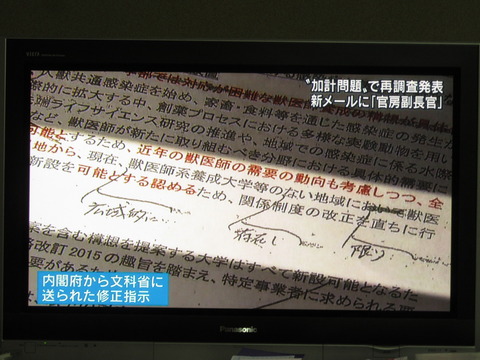 "加計問題"で再調査発表
新メールに「官房副長官」
は対応が困難な獣医師
人獣共通感染症を始め、家畜・食料等を通じた感染症の発生が
際的に拡大する中、創薬プロセスにおける多様な実験動物を用い
端ライフサイエンス研究の推進や、地域での感染症に係る水際
など、獣医師が新たに取り組むべき分野における具体的需要に
可能とするため、近年の獣医師の需要の動向も考慮しつつ、全
地から、現在、獣医師系養成大学等のない地域において獣医
新設を可能とする認めるため、関係制度の改正を直ちに行
広域的に
存在し
限り
案を含む構想を提案する大学はすべて新設可能となるた
略改訂2015の趣旨を踏まえ、特定事業者に求められる要
要があるため
内閣府から文科省に
送られた修正指示
Panasonic